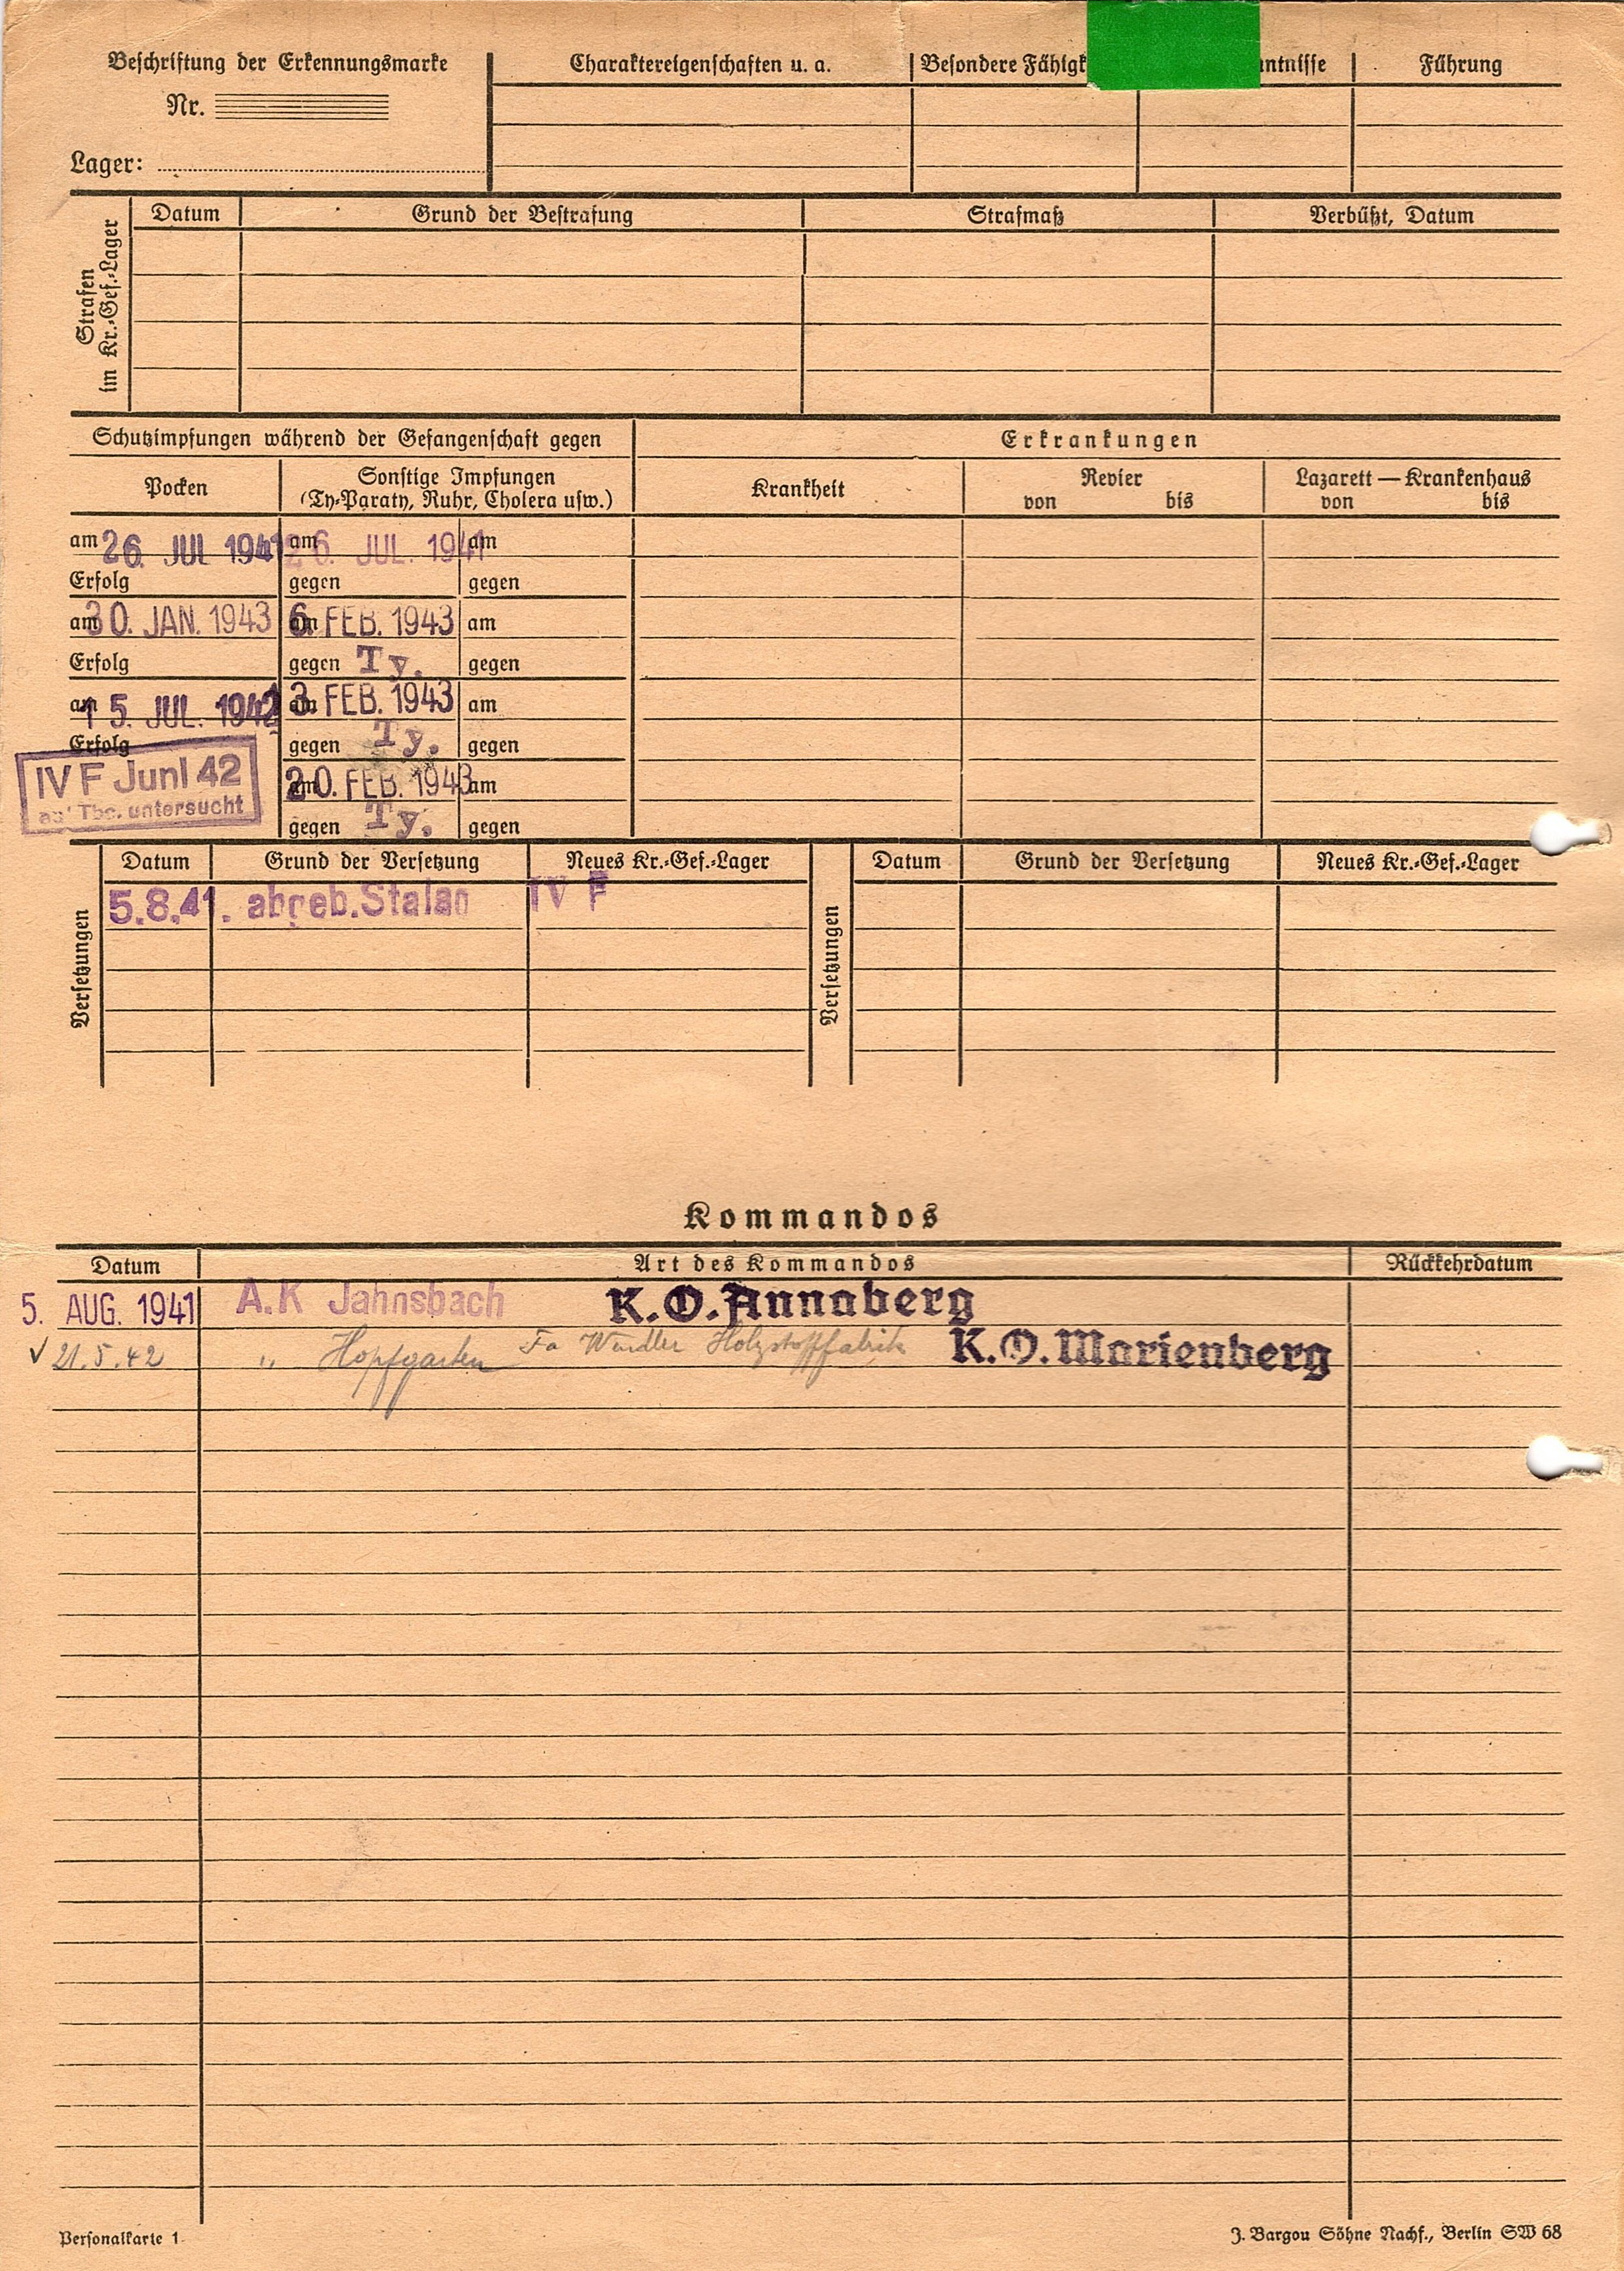 Beschriftung der Erkennungsmarke
Nr.
Lager:
Charaktereigenschaften u. a.
Besondere Fähigk
ntnisse
Führung
Strafen
im Kr.-Gef.-Lager
Datum
Grund der Bestrafung
Strafmaß
Verbüßt, Datum
Schutzimpfungen während der Gefangenschaft gegen
Erkrankungen
Pocken
Sonstige Impfungen
(Ty-Paraty, Ruhr, Cholera usw.)
Krankheit
Revier
von bis
Lazarett — Krankenhaus
von bis
am 26. JUL 1941 am 26. JUL. 1941 am
Erfolg gegen gegen
am 30. JAN. 1943 am 6. FEB. 1943 am
Erfolg gegen Ty. gegen
am 15. JUL. 1942 am 3. FEB. 1943 am
Erfolg gegen Ty. gegen
IV F Juni 42
Tbc. untersucht
am 20. FEB. 1943 am
gegen Ty. gegen
Versetzungen
Datum Grund der Versetzung Neues Kr.-Gef.-Lager
5.8.41. abgeb. Stalag IV F
Versetzungen
Datum Grund der Versetzung Neues Kr.-Gef.-Lager
Kommandos
Datum Art des Kommandos Rückkehrdatum
5. AUG. 1941 A.K Jahnsbach K.O. Annaberg
✓ 21.5.42 " Hopfgarten Fa Holzstofffabrik K.O. Marienberg
Personalkarte 1
J. Bargou Söhne Nachf., Berlin SW 68